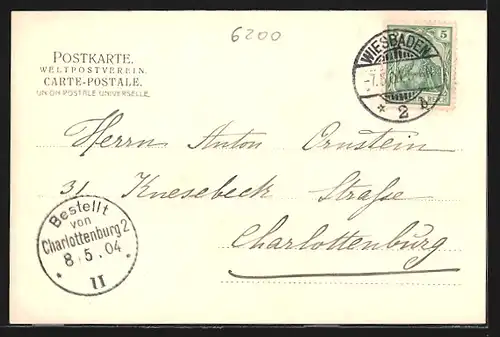 6200
POSTKARTE.
WELTPOSTVEREIN.
CARTE-POSTALE.
UNION POSTALE UNIVERSELLE.
WIESBADEN
* 2
5
Herrn Anton Ornstein
31 Knesebeck Straße
Charlottenburg
Bestellt
von
Charlottenburg 2
8.5.04
* II *